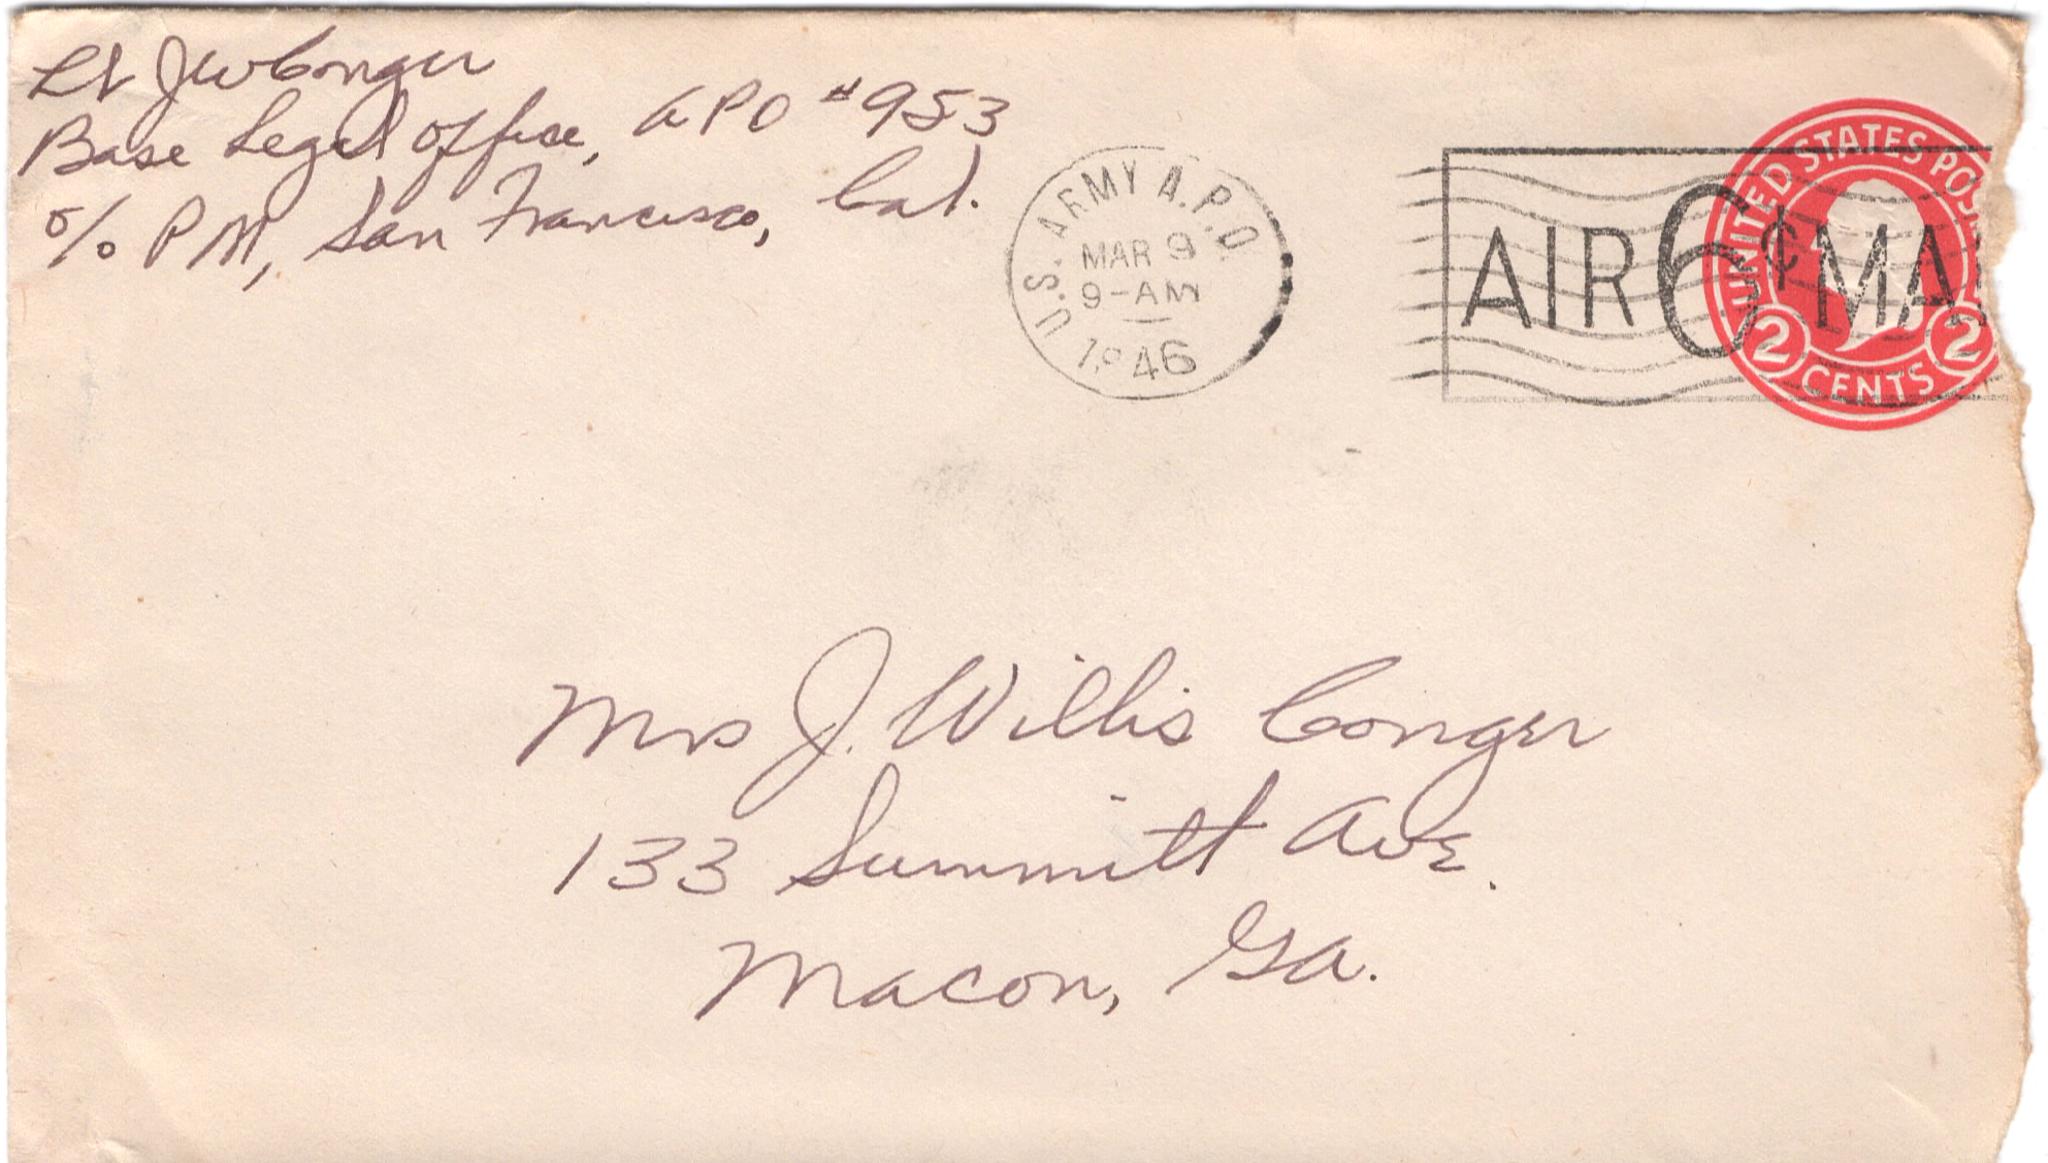 Lt JW Conger
Base Legal Office, APO #953
c/o PM, San Francisco, Cal.
U.S. ARMY A.P.O.
MAR 9
9-AM
1946
UNITED STATES POS
AIR 6¢ MAI
2 CENTS 2
Mrs J. Willis Conger
133 Summitt Ave.
Macon, Ga.